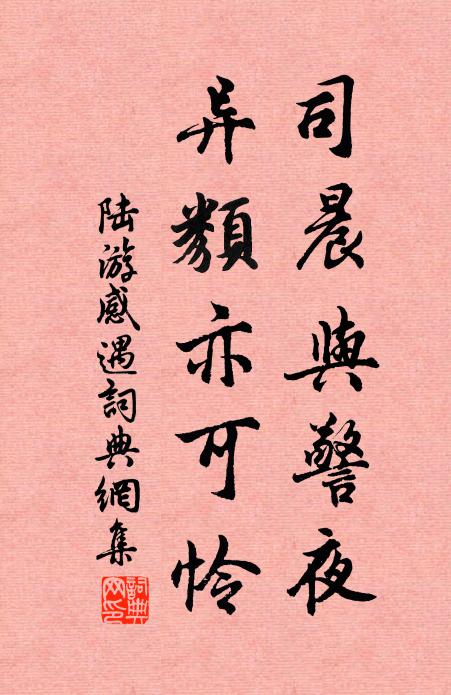 司晨與警夜
异類亦可怜
陆游感遇詞典網集
詞典网印